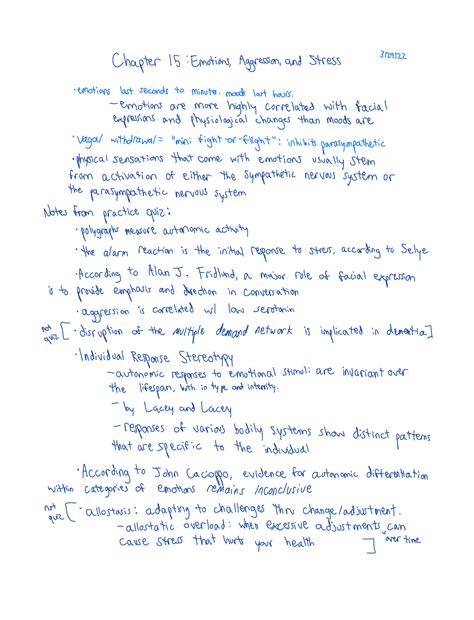 Chapter 15: Emotions, Aggression, and Stress 3/09/22
· emotions last seconds to minute. moods last hours.
– emotions are more highly correlated with facial
expressions and physiological changes than moods are
· vagal withdrawal = "mini fight-or-flight": inhibits parasympathetic
· physical sensations that come with emotions usually stem
from activation of either the sympathetic nervous system or
the parasympathetic nervous system
Notes from practice quiz:
· polygraphs measure autonomic activity
· the alarm reaction is the initial response to stress, according to Selye
· According to Alan J. Fridlund, a major role of facial expression
is to provide emphasis and direction in conversation
· aggression is correlated w/ low serotonin
not quiz [· disruption of the multiple demand network is implicated in dementia]
· Individual Response Stereotypy
– autonomic responses to emotional stimuli are invariant over
the lifespan, both in type and intensity.
– by Lacey and Lacey
– responses of various bodily systems show distinct patterns
that are specific to the individual
· According to John Cacioppo, evidence for autonomic differentiation
within categories of emotions remains inconclusive
not quiz [· allostasis: adapting to challenges thru change/adjustment.
– allostatic overload: when excessive adjustments can
cause stress that hurts your health ] over time